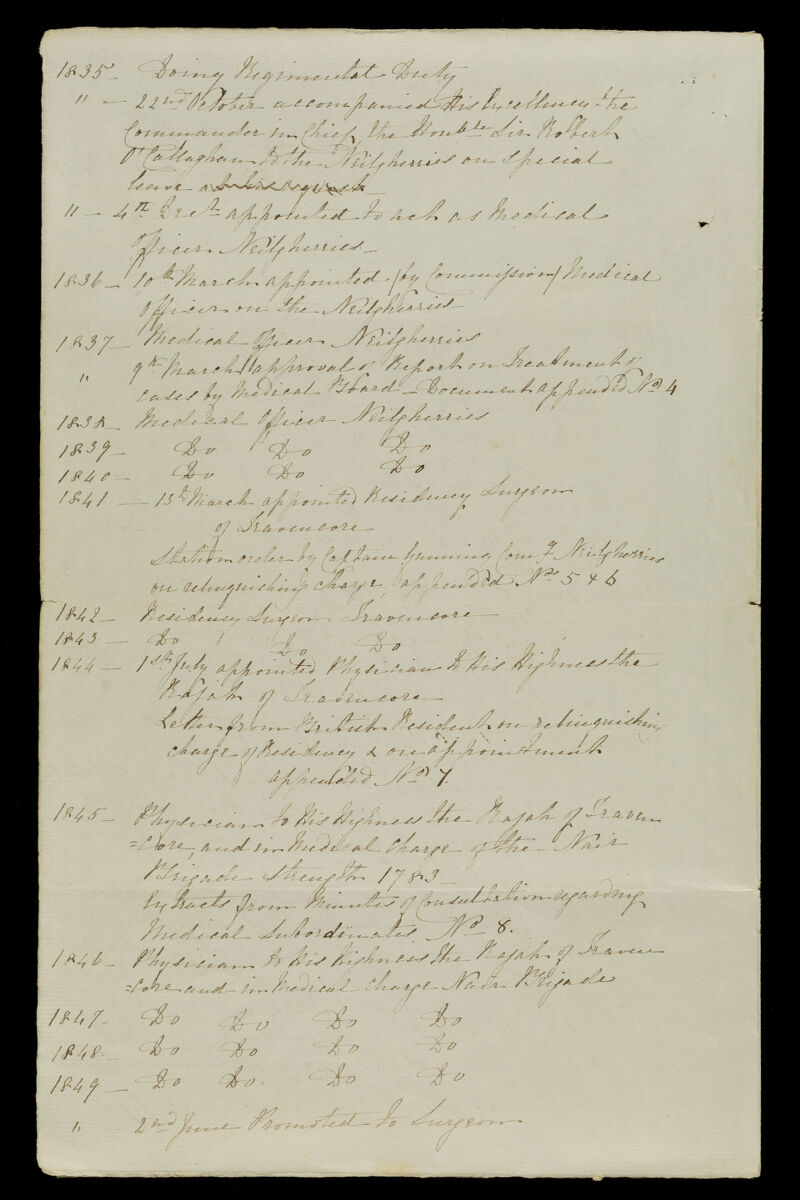 1835 — Doing Regimental Duty
" — 22nd October accompanied His Excellency the
Commander in Chief, the Honble Sir Robert
O'Callaghan to the Neilgherries on special
leave at his request
" — 4th Decr appointed to act as Medical
Officer Neilgherries —
1836 — 10th March appointed (by Commission) Medical
Officer on the Neilgherries
1837 — Medical Officer Neilgherries
" 9th March approval of Report on Treatment of
cases by Medical Board — Document appended No 4
1838 Medical Officer Neilgherries
1839 — Do Do Do
1840 — Do Do Do
1841 — 13th March appointed Residency Surgeon
of Travencore
Station order by Captain Gunning Comg Neilgherries
on relinquishing charge, appended Nos 5 & 6
1842 — Residency Surgeon Travencore
1843 — Do Do Do
1844 — 1st July appointed Physician to His Highness the
Rajah of Travencore
Letter from British Resident on relinquishing
charge of Residency & on appointment
appended No 7.
1845 — Physician to His Highness the Rajah of Traven
=core, and in Medical charge of the Nair
Brigade Strength 1783 —
Extracts from Minutes of Consultation regarding
Medical Subordinates. No 8.
1846 — Physician to His Highness the Rajah of Traven
=core and in Medical charge Nair Brigade
1847 — Do Do Do Do
1848 — Do Do Do Do
1849 — Do Do Do Do
" 2nd June Promoted to Surgeon